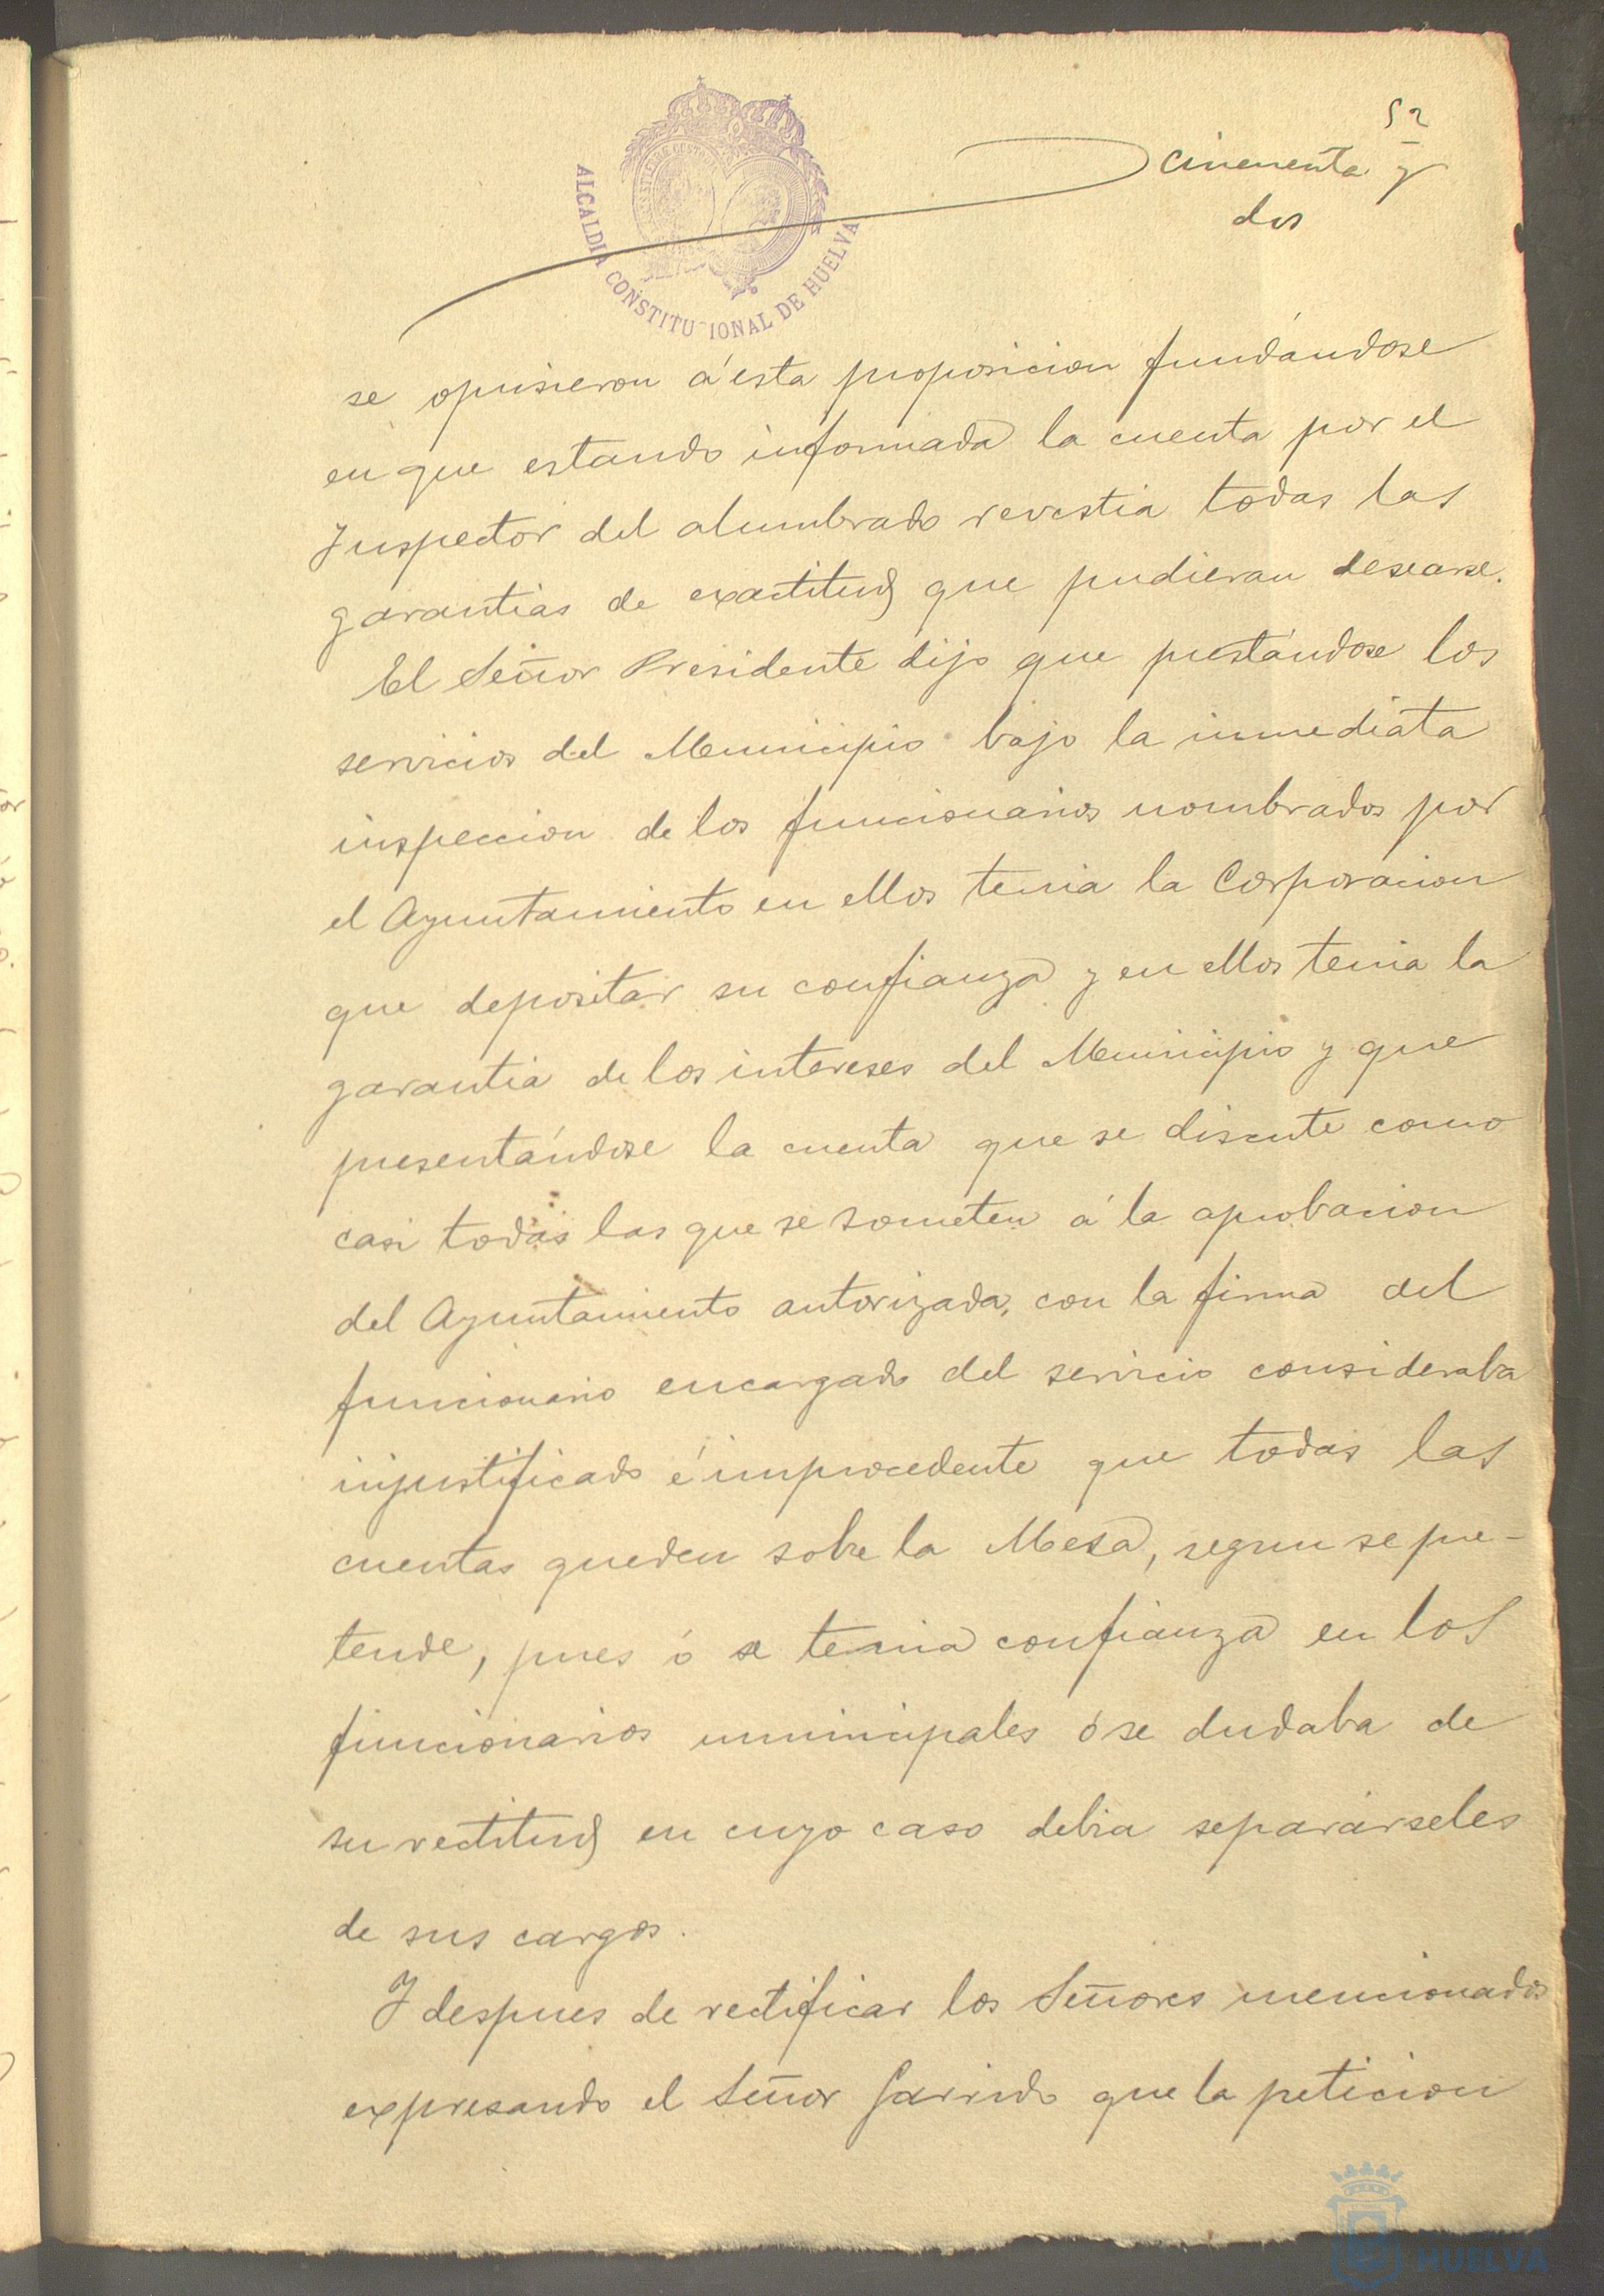 52
cincuenta y
dos
ALCALDIA CONSTITUCIONAL DE HUELVA
se opusieron á esta proposicion fundándose
en que estando informada la cuenta por el
Inspector del alumbrado revestia todas las
garantias de exactitud que pudieran desearse.
El Señor Presidente dijo que prestándose los
servicios del Municipio bajo la inmediata
inspeccion de los funcionarios nombrados por
el Ayuntamiento en ellos tenia la Corporacion
que depositar su confianza y en ellos tenia la
garantia de los intereses del Municipio y que
presentándose la cuenta que se discute como
casi todas las que se someten á la aprobacion
del Ayuntamiento autorizada, con la firma del
funcionario encargado del servicio consideraba
injustificado é improcedente que todas las
cuentas queden sobre la Mesa, segun se pre-
tende, pues ó se tenia confianza en los
funcionarios municipales ó se dudaba de
su rectitud en cuyo caso debia separárseles
de sus cargos.
Y despues de rectificar los Señores mencionados
expresando el Señor Garrido que la peticion
HUELVA